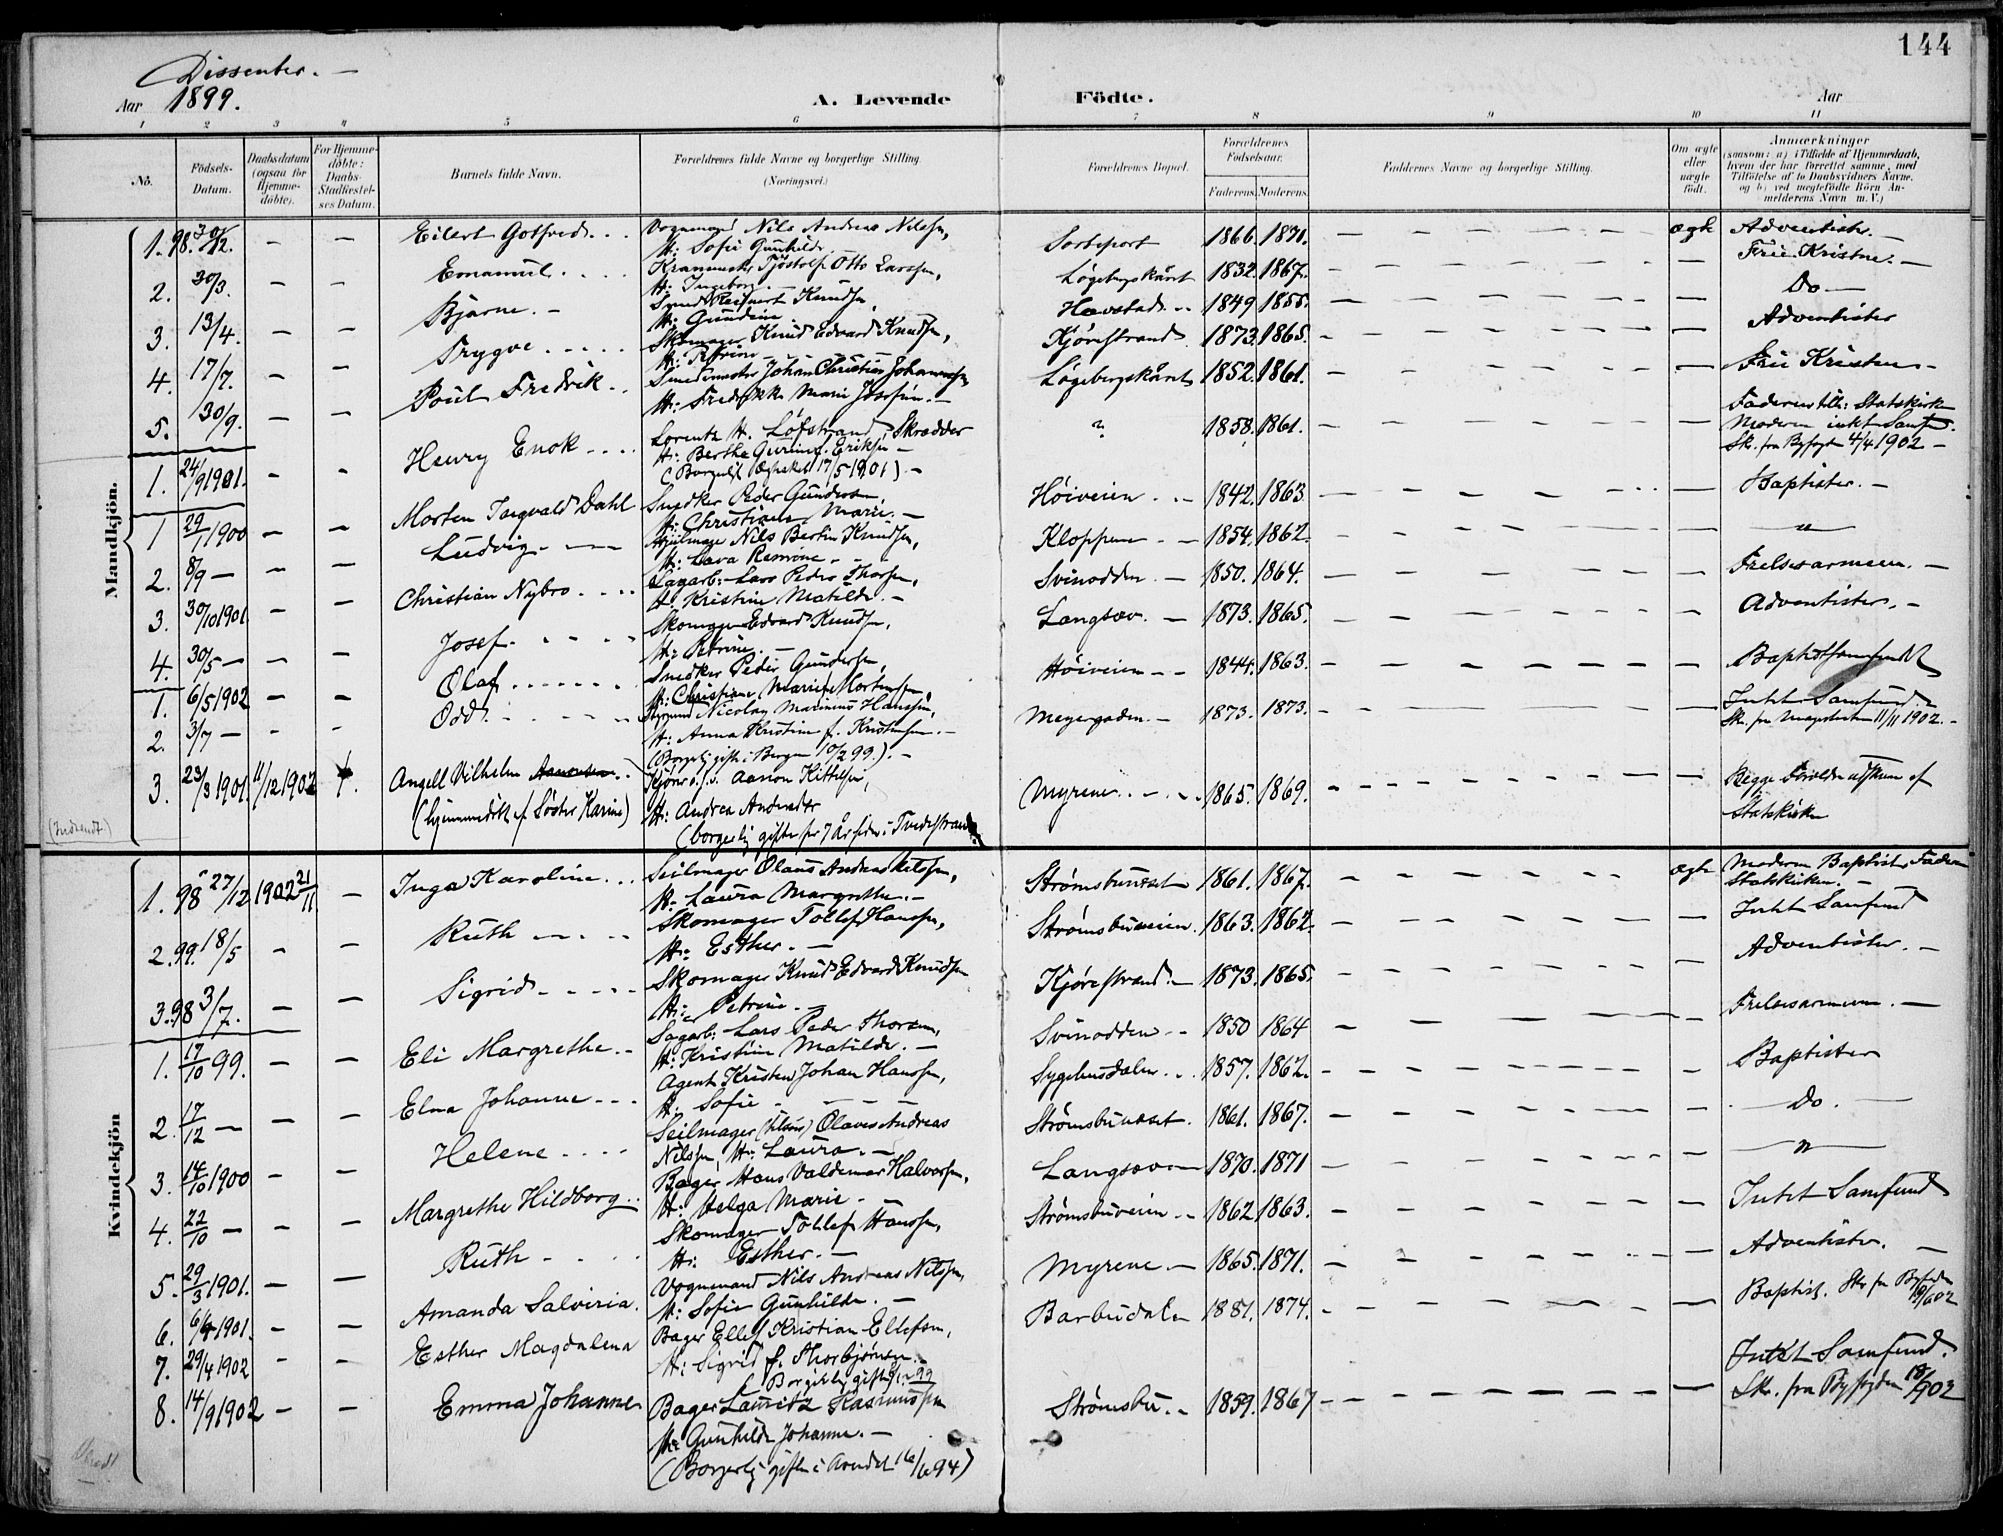 144
Dissenter. —
Aar 1899.
A. Levende Födte.
Aar
1 2 3 4 5 6 7 8 9 10 11
No.
Födsels-Datum.
Daabsdatum (ogsaa for Hjemme-döbte).
For Hjemme-döbte: Daabs-Stadfæstel-ses Datum.
Barnets fulde Navn.
Forældrenes fulde Navne og borgerlige Stilling.
(Næringsvei.)
Forældrenes Bopæl.
Forældrenes Födselsaar.
Faderens. Moderens.
Faddernes Navne og borgerlige Stilling.
Om ægte eller uægte födt.
Anmærkninger
(saasom: a) i Tilfælde af Hjemmedaab, hvem der har forrettet samme, med Tilföielse af to Daabsvidners Navne, og b) ved uegtefödte Börn An-melderens Navn m. V.)
Mandkjön.
1. 98. 30/12. — — Eilert Gotfred... Vognmand Nils Andreas Nilsen,
H: Sofie Gunhilde. 1866. 1871. ægte Adventister. —
2. 30/3. — — Emanuel.... Tjöstolf Otto Larssen,
H: Ingeborg. — Løgebergskåret 1832. 1867. Frie Kristne. —
3. 13/4. — — Bjarne. — Knudsen,
H: Gundine Havstad... 1849 1855. Do —
4. 17/7. — — Trygve..... Skomager Knud Edvard Knudsen,
H: Petrine — Kjørestrand 1873. 1865. Adventister
5. 30/9. — — Poul Fredrik.. Smedmester Johan Christian Johannesen,
H: Fredrikke Marie Josefine. — Løgebergskåret 1852. 1861. Frie Kristen —
1. 24/9 1901. — — Henry Enok.... Lorentz H. Løfstrand, Skrædder
H: Berthe Eriksen —
(Borgerligt Ægteskab 17/5 1901). — ? 1858. 1861. Faderen till: Statskirken
Moderen intet Samfd.
Sk. fra Byfogd 4/4 1902 —
1 29/1 1900 — — Morten Ingvald Dahl Snedker Peder Gundersen,
H: Christiane Marie. — Høiveien... 1842. 1863 Baptister. —
2. 8/9 — — — Ludvig. — Nils Bertin Knudsen,
H: — Kloppene — 1854. 1862. — " —
3. 30/10 1901. — — Christian Nybro.... Sagarb: Lars Peder Thorsen,
H: Kristine Matilde. — Svinodden. — 1850. 1864. Frelsesarmeen. —
4. 30/5 — — — Josef..... Skomager Edvard Knudsen,
H: Petrine. — Langsæv. — 1873. 1865. Adventister. —
1. 6/5 1902 — — Olaf....... Snedker Peder Gundersen,
H: Christiane Marie f. Mortensen, Høiveien — 1844. 1863. Baptistsamfundet
2. 3/7 — — — Odd..... Nicolay Marinius Hansen,
H: Anna Kristine f. Kristensen. —
(Borgerl. gift i Bergen 10/2 99). — Meyergaden. — 1873. 1873. Intet Samfund.
Sk. fra Magistraten 11/11 1902. —
3. 23/3 1901. 11/12 1902 Angell Vilhelm Aanonsen..
(hjemmedøbt af Søster Karine) Aanon Kittelsen,
H: Andrea
(borgerlig gifte for 7 År siden i Tvedestrand) Myrene.... 1865. 1869. Begge Forældre af
Statskirken
(Indsendt)
Kvindekjön
1. 98 27/12 1902 21/11 — Inga Karoline... Seilmager Olaus Andreas Nilsen,
H: Laura Margrethe. — Strømsbunæset 1861. 1867. ægte Moderen Baptist, Faderen
Statskirken. —
2. 99. 18/5 — — Ruth — Skomager Tollef Hanssen,
H: Esther. — Strømsbuveien. 1863. 1862. Intet Samfund
3. 98 3/7. — — Sigrid..... Skomager Knud Edvard Knudsen
H: Petrine. — Kjørestrand. — 1873. 1865. Adventister. —
1. 17/10 99. — — Eli Margrethe. — Sagarb: Lars Peder Thorsen,
H: Kristine Matilde. — Svinodden.. 1850 1864 Frelsesarmeen. —
2. 17/12 — — — Elna Johanne — Agent Kristen Johan Hanssen,
H: Sofie — Sygehusdalen.. 1857. 1862. Baptister
3. 14/10 1900 — — Helene.... Seilmager (Olaus) Olaves Andreas
Nilsen, H: Laura. — Strømsbunæset. 1861. 1867. Do. —
4. 22/10 — — — Margrethe Hildborg.. Bager Hans Valdemar Halvorsen,
H: Helga Marie — Langsæven 1870. 1871 — " —
5. 29/3 1901. — — Ruth — Skomager Tollef Hanssen,
H: Esther. — Strømsbuveien.. 1862 1863. Intet Samfund
6. 6/4 1901. — — Amanda Salviria. Vognmand Nils Andreas Nilsen,
H: Sofie Gunhilde. — Myrene — 1865. 1871. Adventister. —
7. 29/4 1902 — — Esther Magdalena Bager Ellef Kristian Ellefsen,
H: Sigrid f. Thorbjørnsen.
Borgerlig gifte 99 Barbudalen 1881. 1874. Baptist. fra Byfogden 902
8. 14/9 1902 — — Emma Johanne Bager Lauritz Rasmussen
H: Gunhilde Johanne. —
(Borgerlig gifte i Arendal 16/6 94) Strømsbu.. 1859. 1867 Intet Samfund.
Sk. fra Byfogden 902